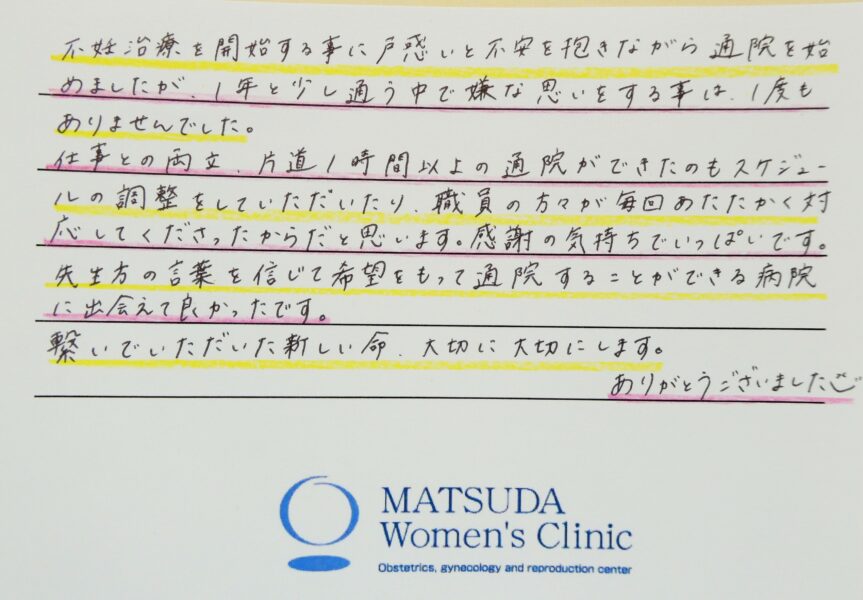 不妊治療を開始する事に戸惑いと不安を抱きながら通院を始
めましたが、1年と少し通う中で嫌な思いをする事は、1度も
ありませんでした。
仕事との両立、片道1時間以上の通院ができたのもスケジュー
ルの調整をしていただいたり、職員の方々が毎回あたたかく対
応してくださったからだと思います。感謝の気持ちでいっぱいです。
先生方の言葉を信じて希望をもって通院することができる病院
に出会えて良かったです。
繋いでいただいた新しい命、大切に大切にします。
ありがとうございました
MATSUDA
Women's Clinic
Obstetrics, gynecology and reproduction center